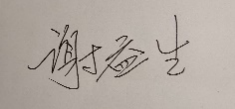 谢益生